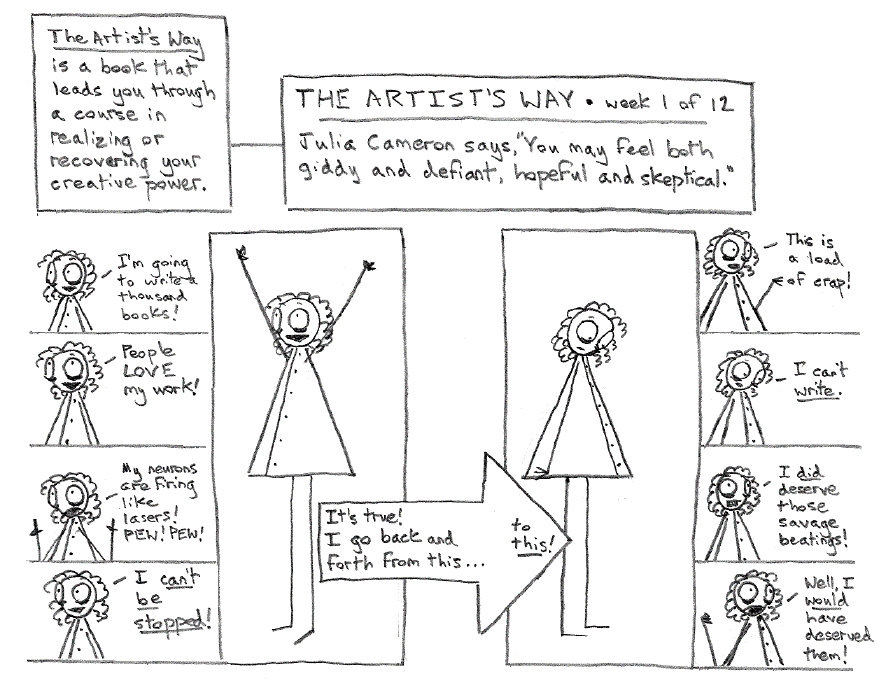 The Artist's Way
is a book that
leads you through
a course in
realizing or
recovering your
creative power.
THE ARTIST'S WAY • week 1 of 12
Julia Cameron says, "You may feel both
giddy and defiant, hopeful and skeptical."
I'm going
to write a
thousand
books!
People
LOVE
my work!
My neurons
are firing
like
lasers!
PEW! PEW!
I can't
be
stopped!
It's true!
I go back and
forth from this...
to
this!
This is
a load
of crap!
I can't
write.
I did
deserve
those
savage
beatings!
Well, I
would
have
deserved
them!